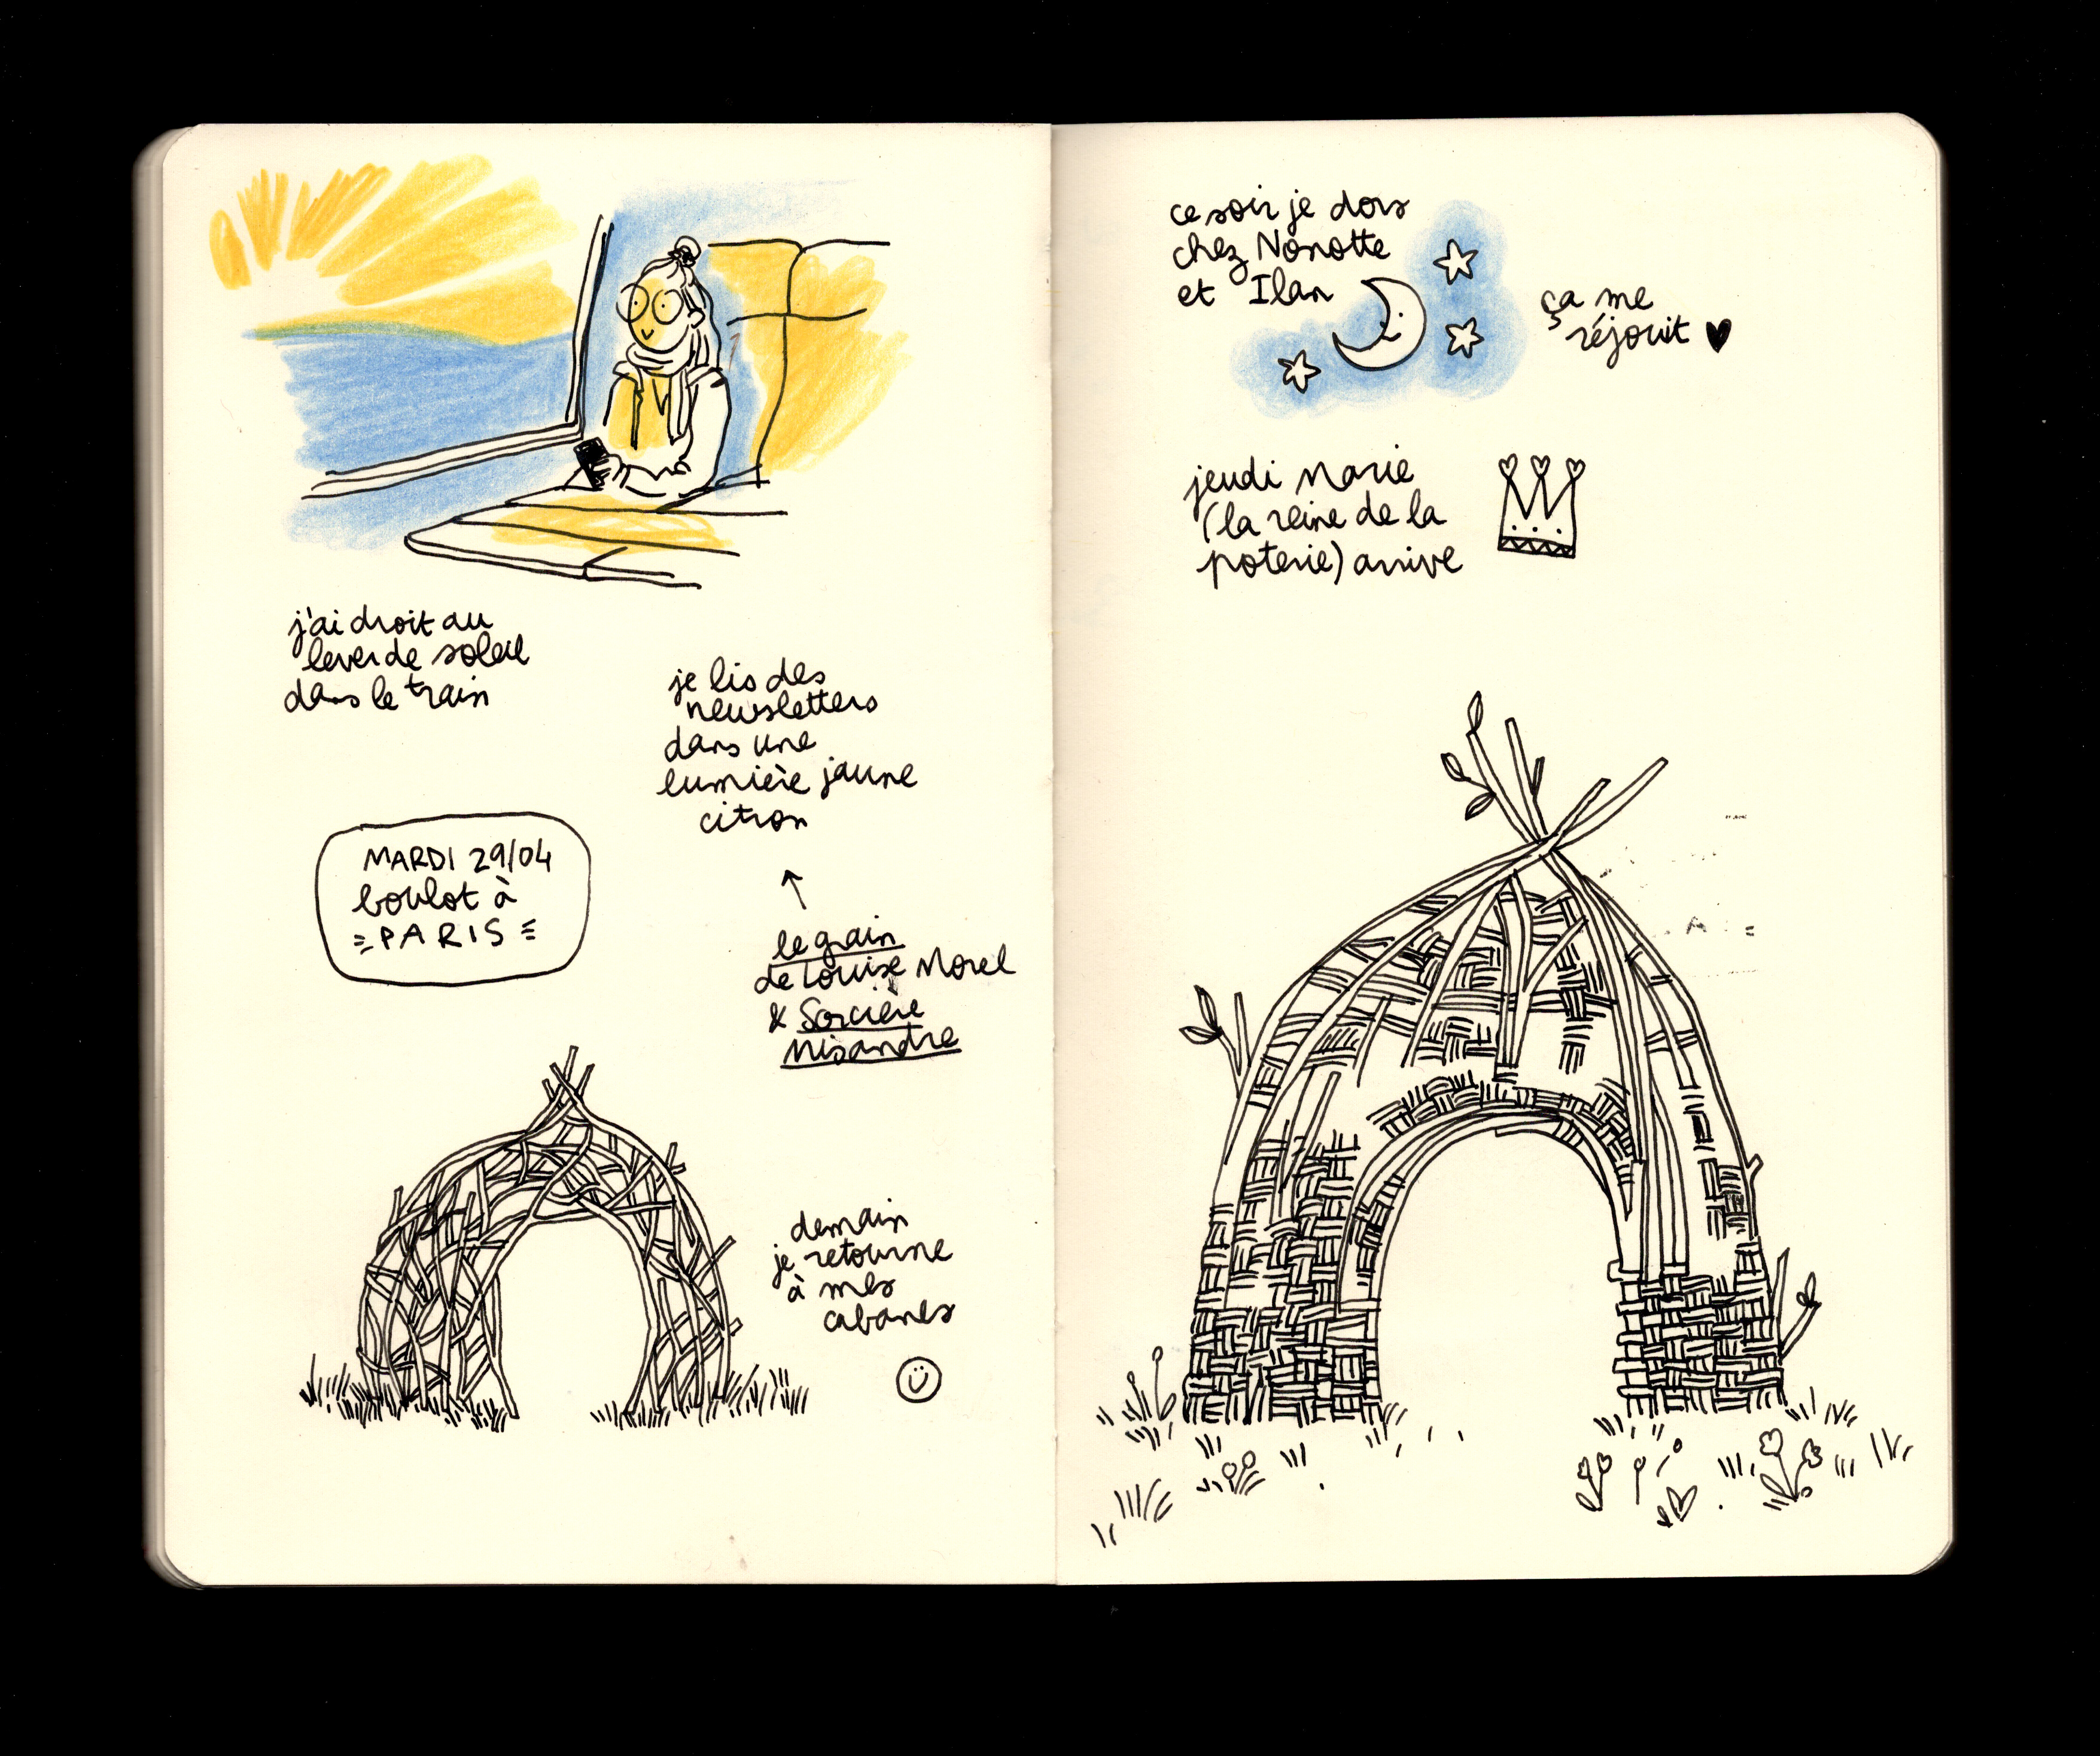 j'ai droit au
lever de soleil
dans le train
je lis des
newsletters
dans une
lumière jaune
citron
le grain
de Louise Morel
& Sorcière
Misandre
MARDI 29/04
boulot à
PARIS
demain
je retourne
à mes
cabanes
ce soir je dors
chez Nonotte
et Ilan
ça me
réjouit
jeudi Marie
(la reine de la
poterie) arrive